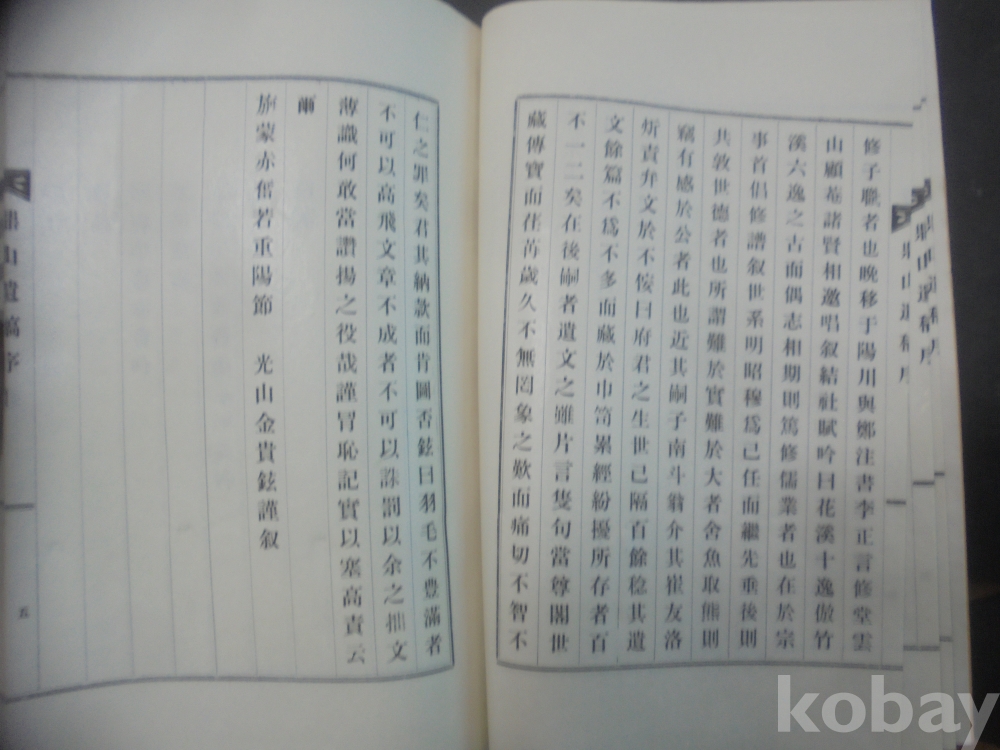 修子職者也晚移于陽川與鄭注書李正言修堂雲
山顧菴諸賢相邀唱叙結社賦吟曰花溪十逸倣竹
溪六逸之古而偶志相期則篤修儒業者也在於宗
事首倡修譜叙世系明昭穆爲己任而繼先垂後則
共敦世德者也所謂難於實難於大者舍魚取熊則
竊有感於公者此也近其嗣子南斗翁介其崔友洛
炘責弁文於不侫曰府君之生世已隔百餘稔其遺
文餘篇不爲不多而藏於巾笥累經紛擾所存者百
不一二矣在後嗣者遺文之雖片言隻句當尊閣世
藏傳寶而荏苒歲久不無罔象之歎而痛切不智不
仁之罪矣君其納款而肯圖否鉉曰羽毛不豊滿者
不可以高飛文章不成者不可以誅罰以余之拙文
薄識何敢當讚揚之役哉謹冒恥記實以塞高責云
爾
旃蒙赤奮若重陽節 光山金貴鉉謹叙
山遺稿序
五
kobay